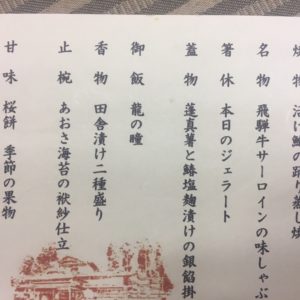 焼物 活け鮑の踊り蒸し焼
名物 飛騨牛サーロインの味しゃぶ
箸休 本日のジェラート
蓋物 蓮真薯と鰆塩麹漬けの銀餡掛
御飯 龍の瞳
香物 田舎漬け二種盛り
止椀 あおさ海苔の袱紗仕立
甘味 桜餅 季節の果物